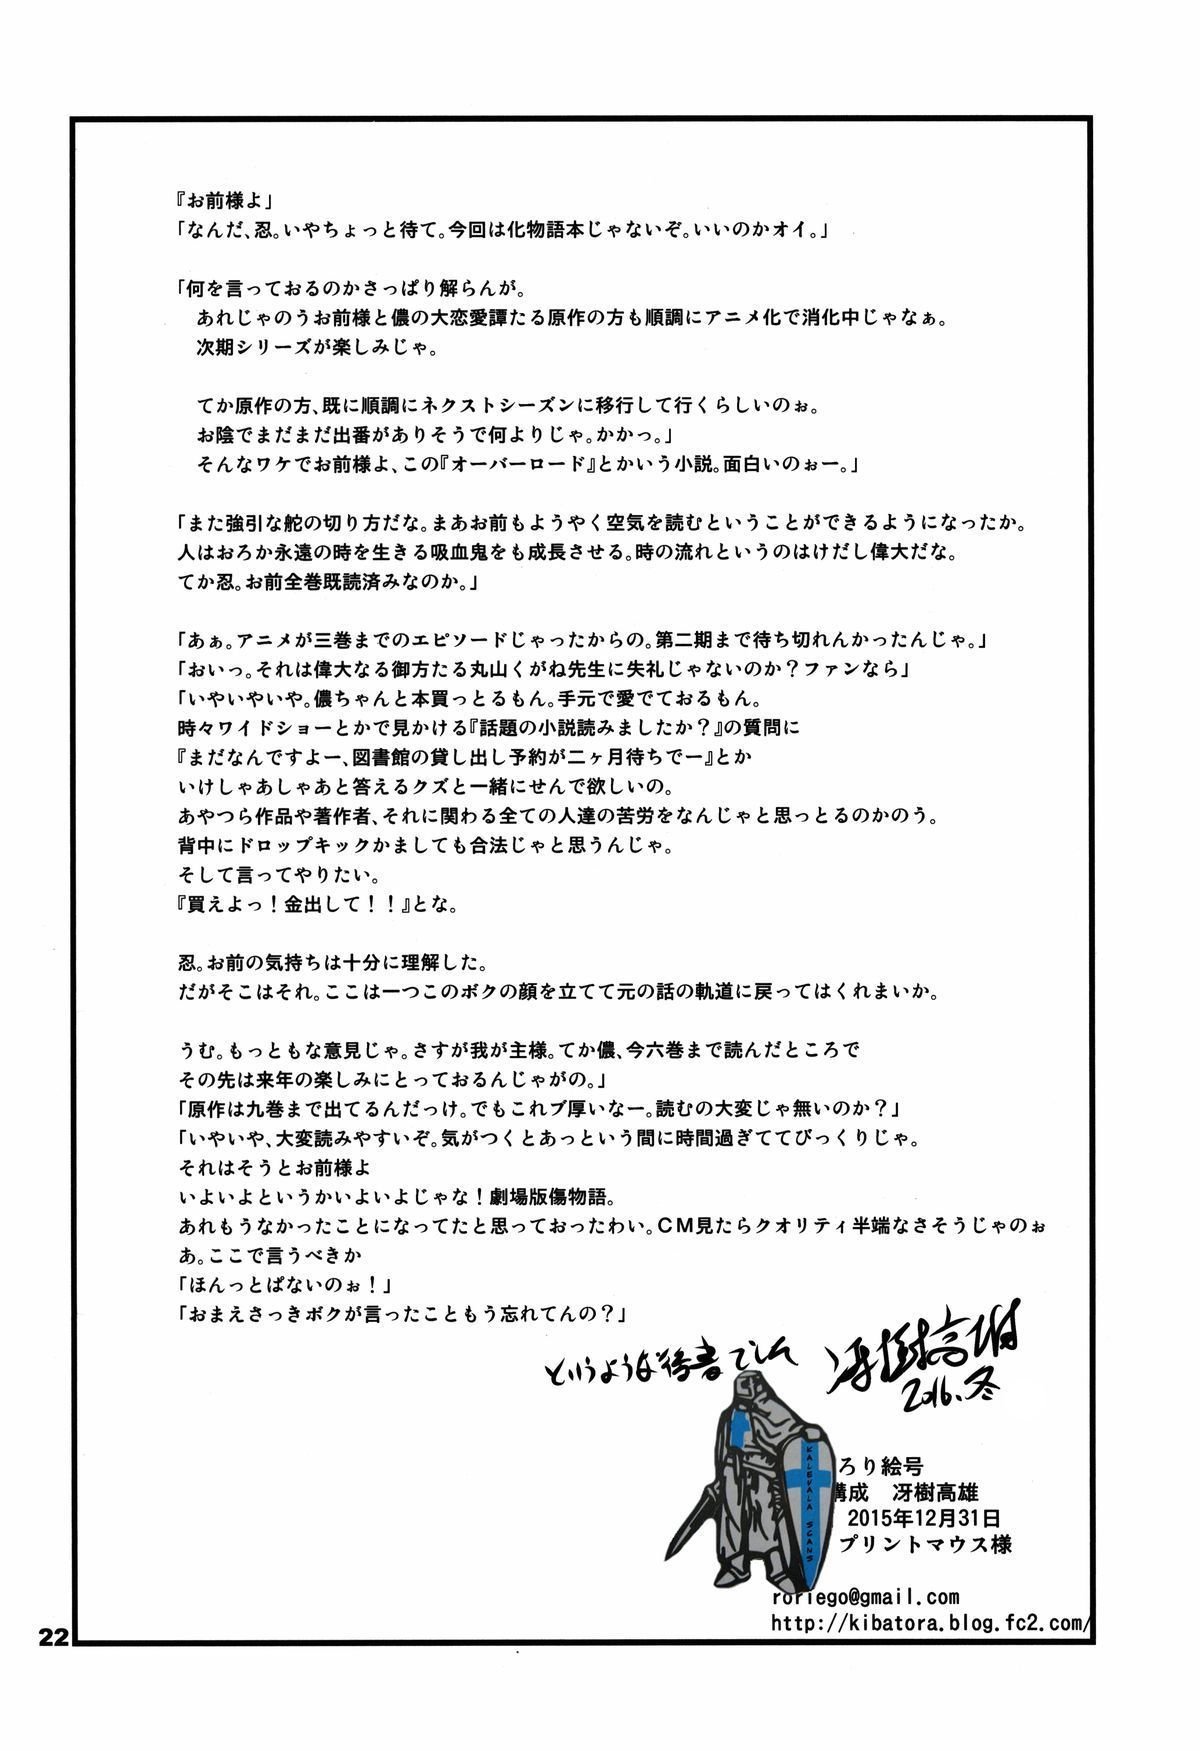 『お前様よ」
「なんだ、忍。いやちょっと待て。今回は化物語本じゃないぞ。いいのかオイ。」
「何を言っておるのかさっぱり解らんが。
あれじゃのうお前様と儂の大恋愛譚たる原作の方も順調にアニメ化で消化中じゃなぁ。
次期シリーズが楽しみじゃ。
てか原作の方、既に順調にネクストシーズンに移行して行くらしいのぉ。
お陰でまだまだ出番がありそうで何よりじゃ。かかっ。」
そんなワケでお前様よ、この『オーバーロード』とかいう小説。面白いのぉー。」
「また強引な舵の切り方だな。まあお前もようやく空気を読むということができるようになったか。
人はおろか永遠の時を生きる吸血鬼をも成長させる。時の流れというのはけだし偉大だな。
てか忍。お前全巻既読済みなのか。」
「あぁ。アニメが三巻までのエピソードじゃったからの。第二期まで待ち切れんかったんじゃ。」
「おいっ。それは偉大なる御方たる丸山くがね先生に失礼じゃないのか？ファンなら」
「いやいやいや。儂ちゃんと本買っとるもん。手元で愛でておるもん。
時々ワイドショーとかで見かける『話題の小説読みましたか？』の質問に
『まだなんですよー、図書館の貸し出し予約が二ヶ月待ちでー』とか
いけしゃあしゃあと答えるクズと一緒にせんで欲しいの。
あやつら作品や著作者、それに関わる全ての人達の苦労をなんじゃと思っとるのかのう。
背中にドロップキックかましても合法じゃと思うんじゃ。
そして言ってやりたい。
『買えよっ！金出して！！』とな。
忍。お前の気持ちは十分に理解した。
だがそこはそれ。ここは一つこのボクの顔を立てて元の話の軌道に戻ってはくれまいか。
うむ。もっともな意見じゃ。さすが我が主様。てか儂、今六巻まで読んだところで
その先は来年の楽しみにとっておるんじゃがの。」
「原作は九巻まで出てるんだっけ。でもこれブ厚いなー。読むの大変じゃ無いのか？」
「いやいや、大変読みやすいぞ。気がつくとあっという間に時間過ぎててびっくりじゃ。
それはそうとお前様よ
いよいよというかいよいよじゃな！劇場版傷物語。
あれもうなかったことになってたと思っておったわい。ＣＭ見たらクオリティ半端なさそうじゃのぉ
あ。ここで言うべきか
「ほんっとぱないのぉ！」
「おまえさっきボクが言ったこともう忘れてんの？」
というような後書でした
冴樹高雄
2016.冬
KALEVALA SCANS
ろり絵号
構成　冴樹高雄
2015年12月31日
プリントマウス様
roriego@gmail.com
http://kibatora.blog.fc2.com/
22